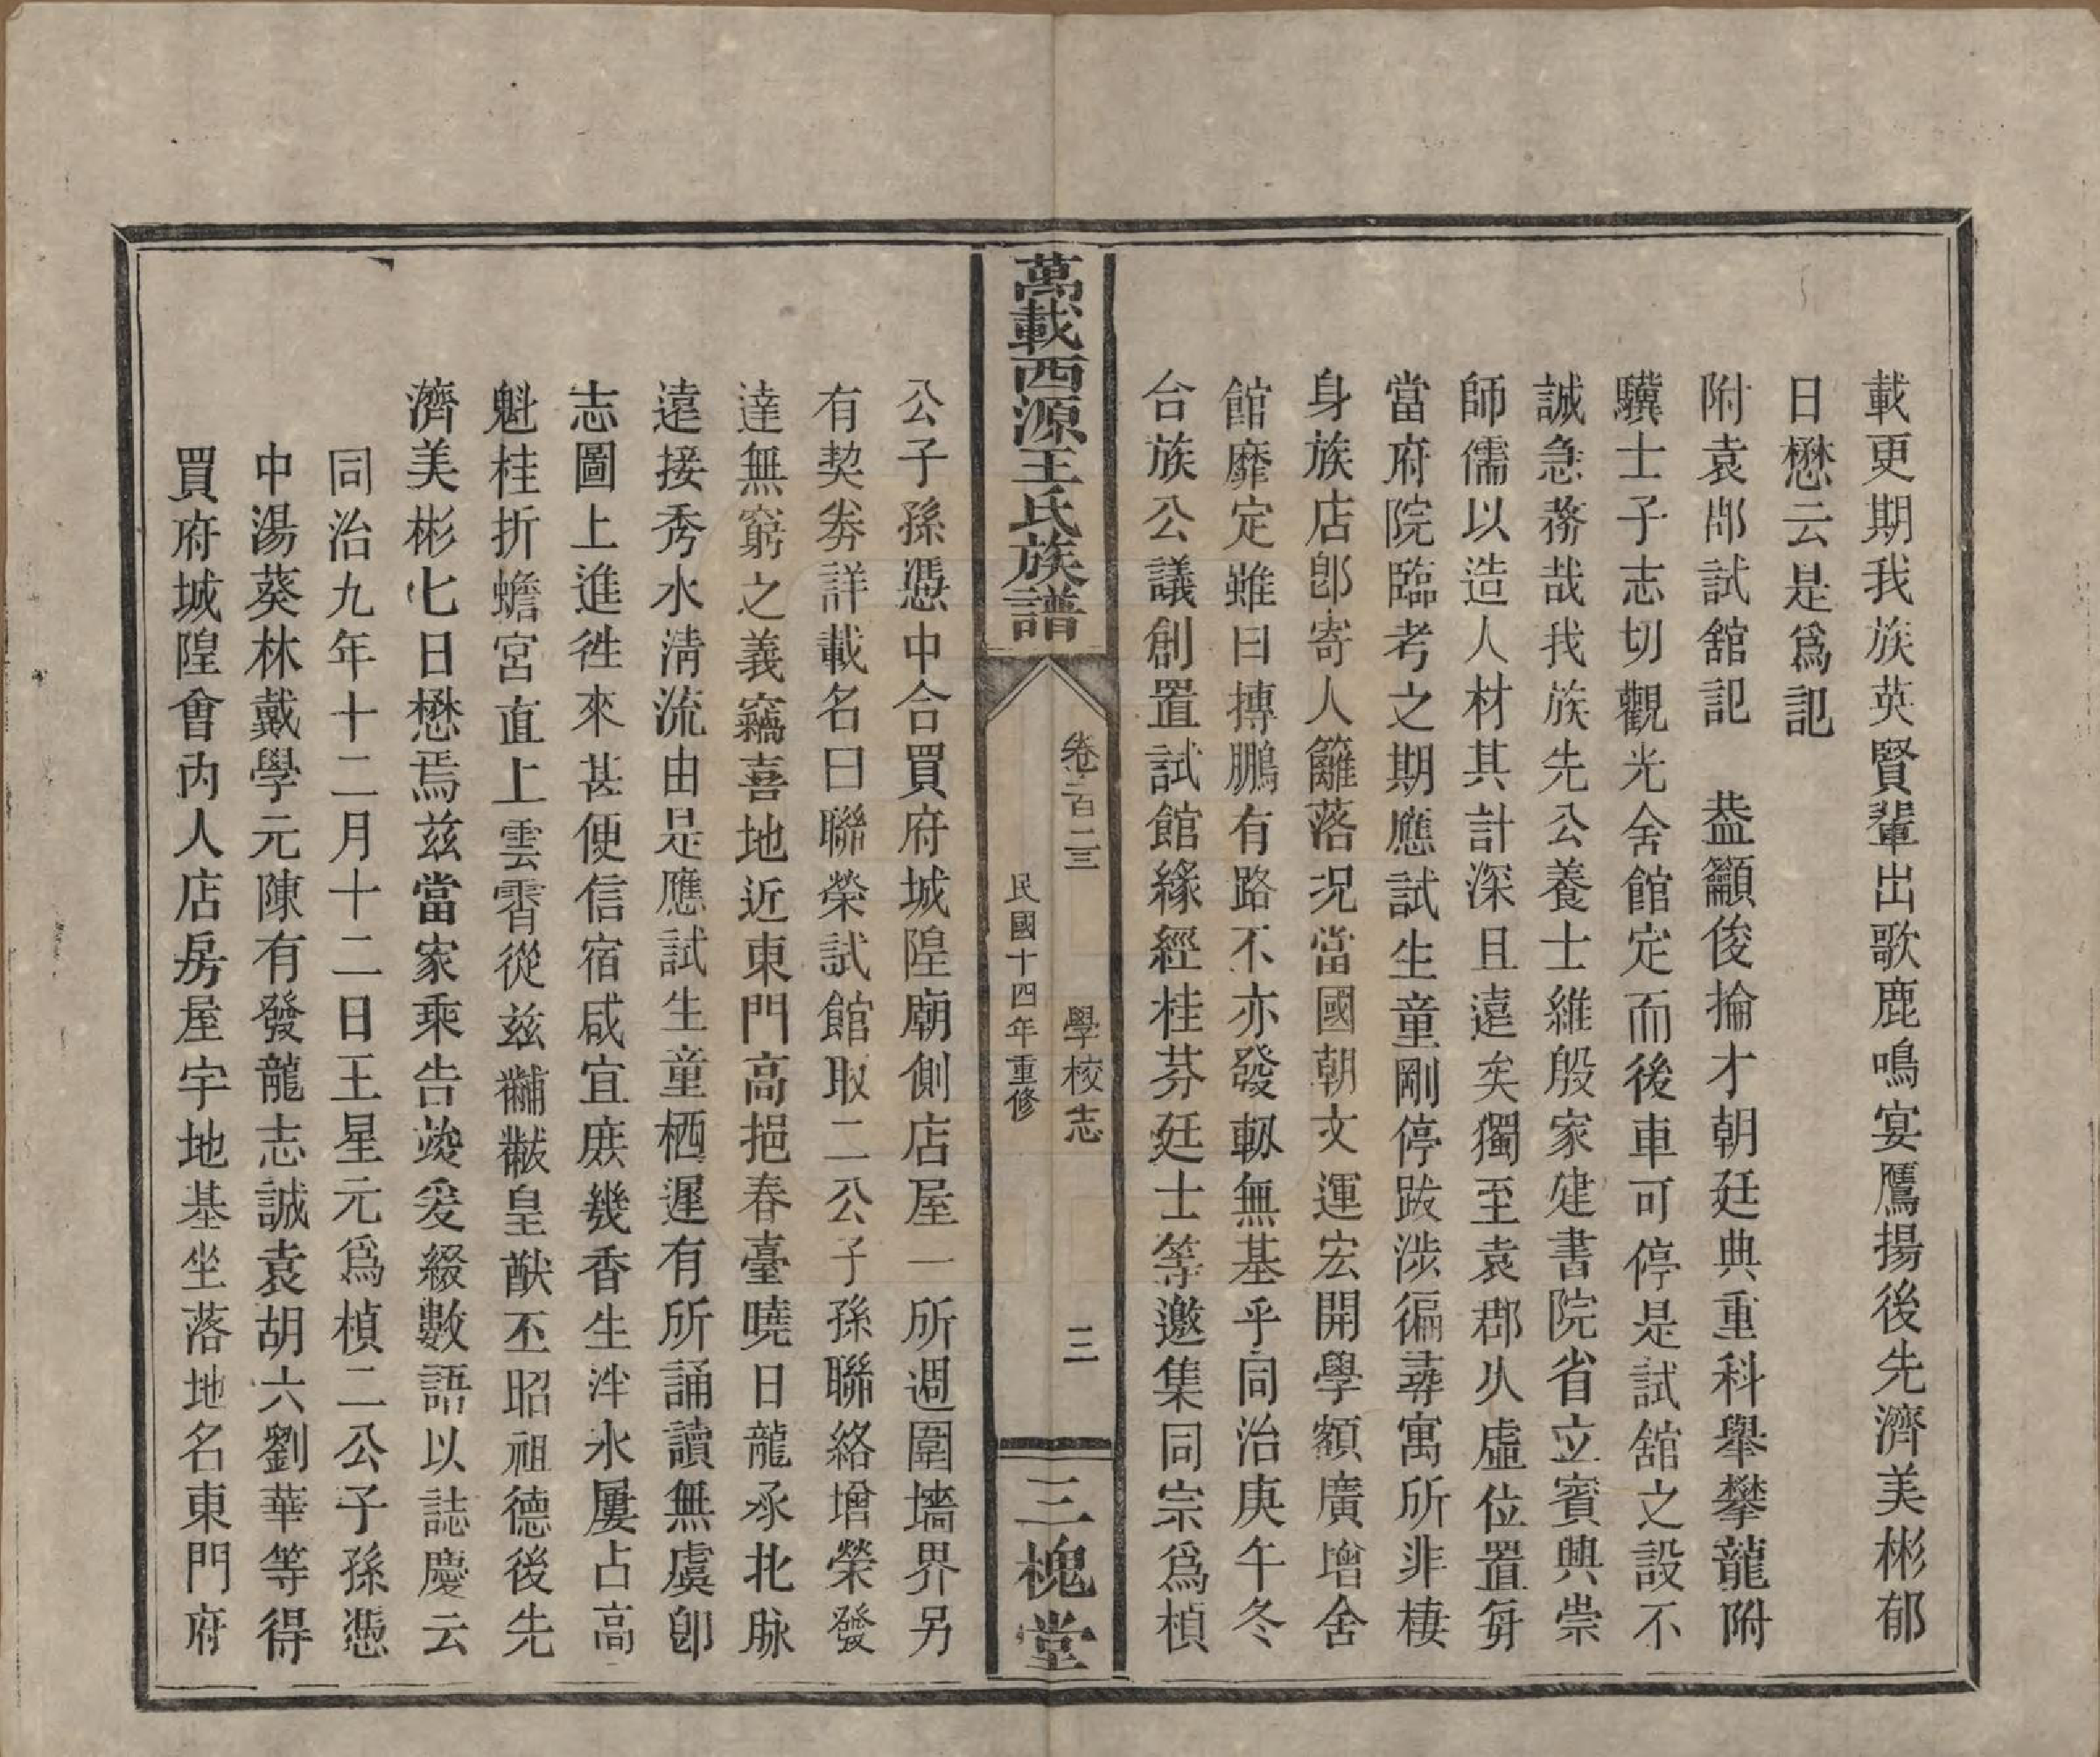 載更期我族英賢輩出歌鹿鳴宴鷹揚後先濟美彬郁
日懋云是爲記
附袁郡試舘記　葢籲俊掄才朝廷典重科舉攀龍附
驥士子志切觀光舍館定而後車可停是試舘之設不
誠急務哉我族先公養士維殷家建書院省立賓興崇
師儒以造人材其計深且遠矣獨至袁郡久虛位置每
當府院臨考之期應試生童剛停跋涉徧尋寓所非棲
身族店卽寄人籬落況當國朝文運宏開學額廣增舍
館靡定雖曰摶鵬有路不亦發軔無基乎同治庚午冬
台族公議創置試館緣經桂芬廷士等邀集同宗爲楨
萬載西源王氏族譜
卷一百二三
學校志
三
民國十四年重修
三槐堂
公子孫憑中合買府城隍廟側店屋一所週圍墻界另
有契劵詳載名曰聯榮試館取二公子孫聯絡增榮發
達無窮之義竊喜地近東門高挹春臺曉日龍承北脉
遠接秀水清流由是應試生童栖遲有所誦讀無虞卽
志圖上進徃來甚便信宿咸宜庶幾香生泮水屢占高
魁桂折蟾宮直上雲霄從兹黼黻皇猷丕昭祖德後先
濟美彬七日懋焉兹當家乘告竣爰綴數語以誌慶云
同治九年十二月十二日王星元爲楨二公子孫憑
中湯葵林戴學元陳有發龍志誠袁胡六劉華等得
買府城隍會內人店房屋宇地基坐落地名東門府